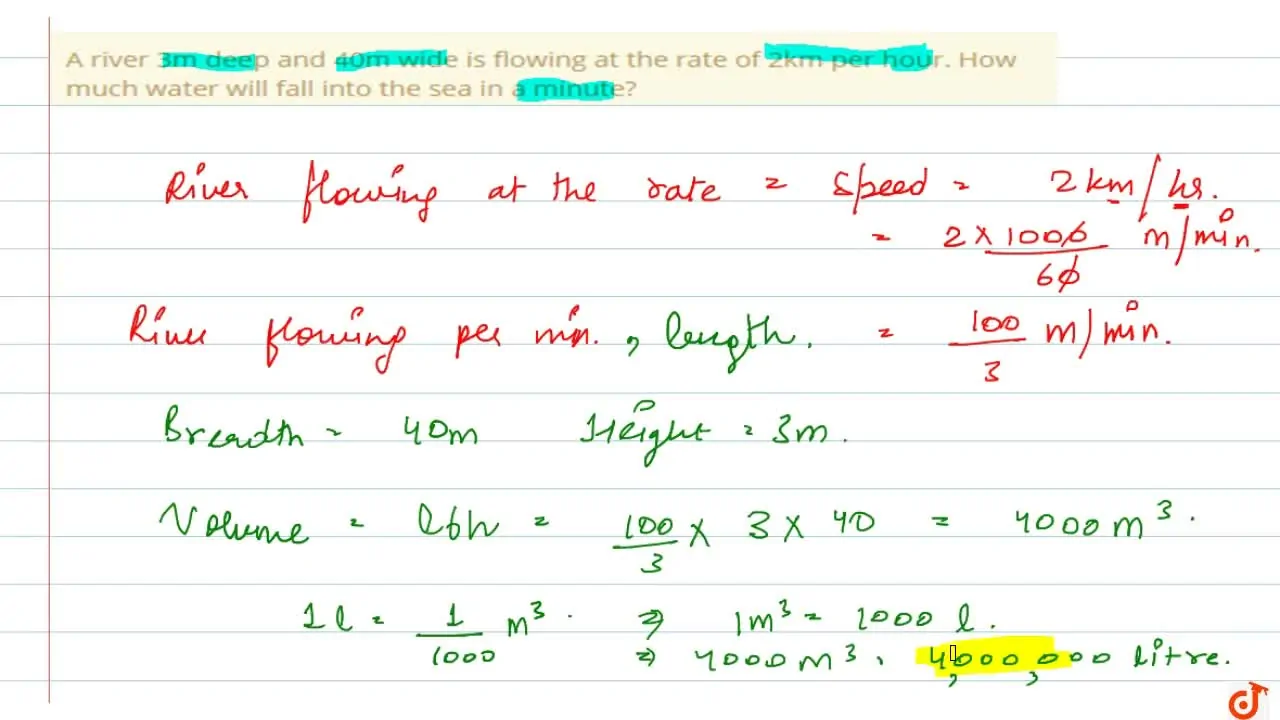 A river 3m deep and 40m wide is flowing at the rate of 2km per hour. How
much water will fall into the sea in a minute?
River flowing at the rate = speed = 2km/hr.
= 2 × 1000/60 m/min.
River flowing per min., length. = 100/3 m/min.
Breadth = 40m Height = 3m.
Volume = lbh = 100/3 × 3 × 40 = 4000 m³.
1l = 1/1000 m³. ⇒ 1m³ = 1000 l.
⇒ 4000 m³, 4,000,000 litre.